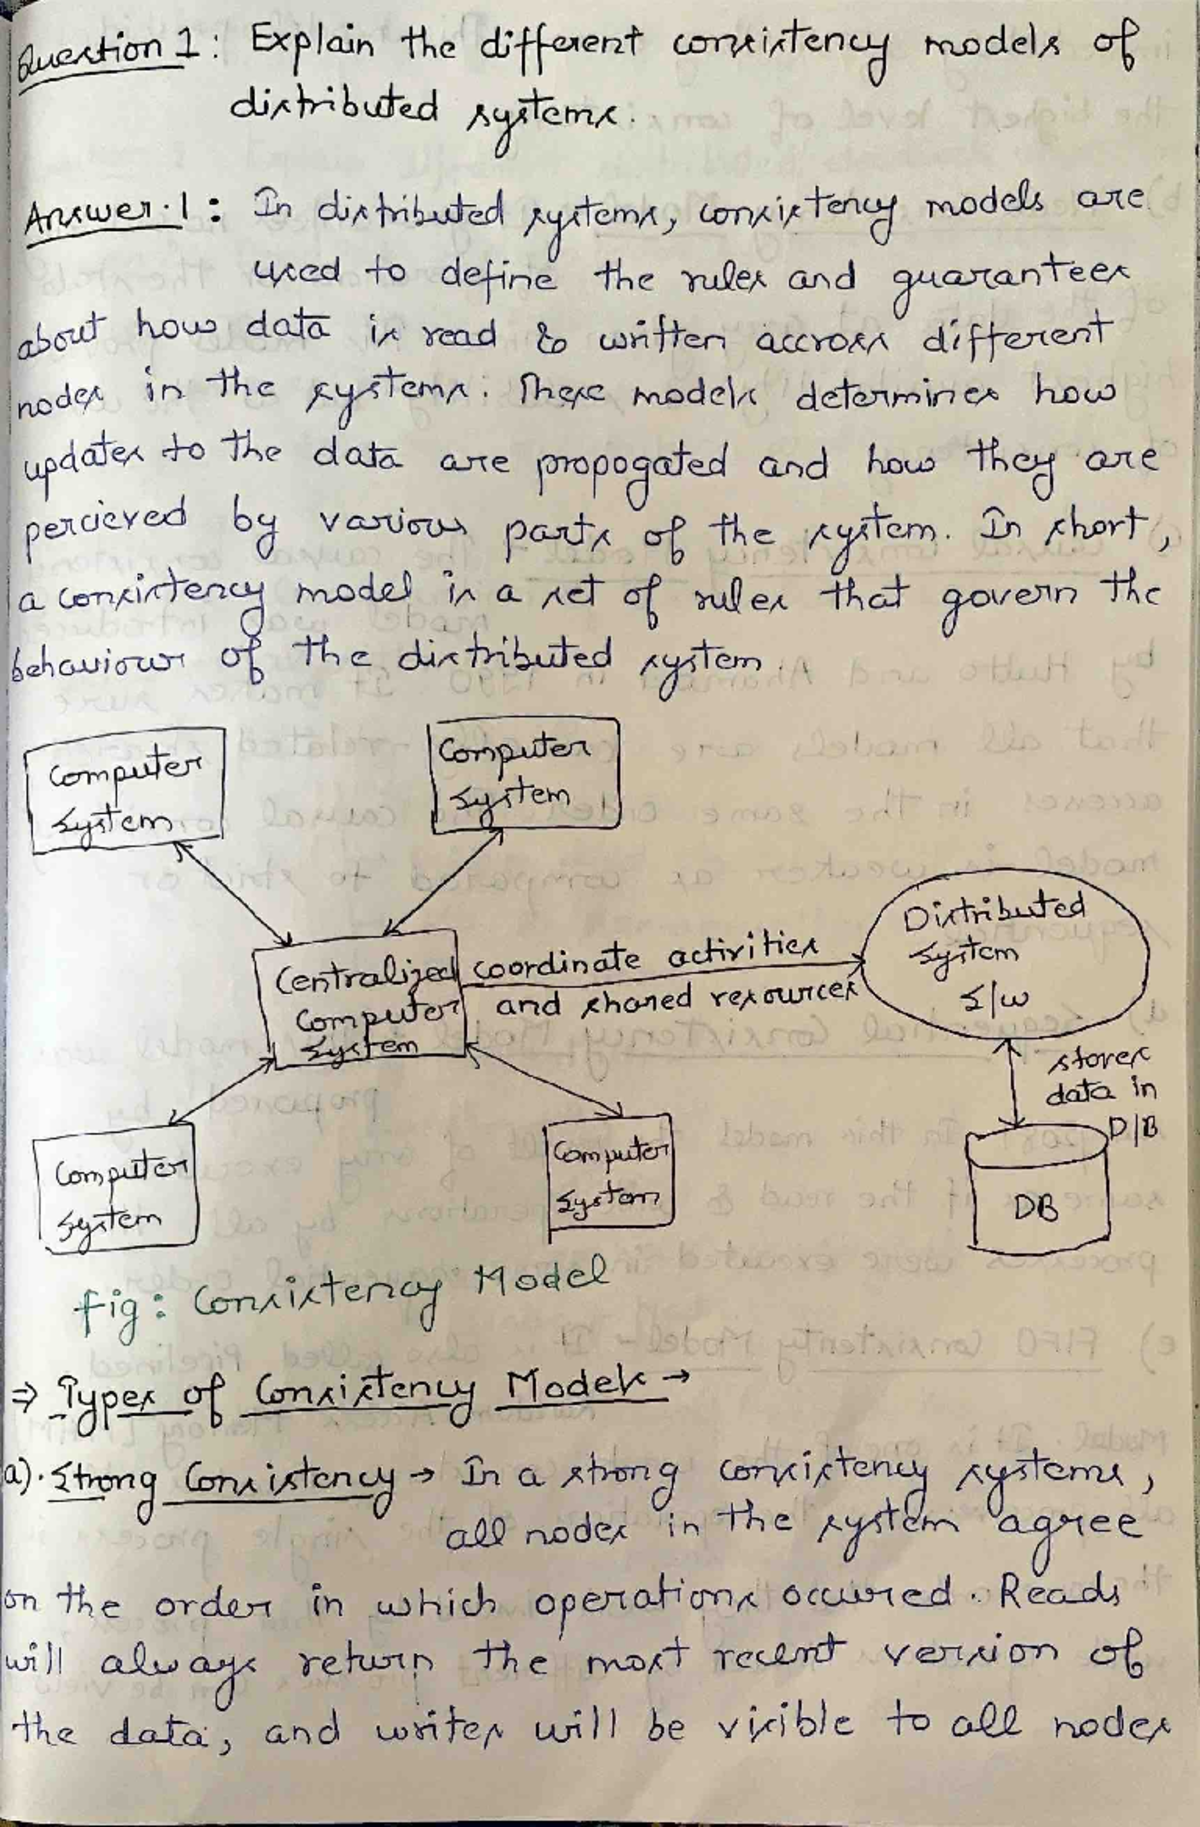 Question 1: Explain the different consistency models of
distributed systems.
Answer.1: In distributed systems, consistency models are
used to define the rules and guarantees
about how data is read & written accross different
nodes in the systems. These models determines how
updates to the data are propogated and how they are
percieved by various parts of the system. In short,
a consistency model is a set of rules that govern the
behaviour of the distributed system.
Computer
System
Computer
System
Centralized
Computer
System
coordinate activities
and shared resources
Distributed
System
S/w
stores
data in
D/B
DB
Computer
System
Computer
System
fig: Consistency Model
⇒ Types of Consistency Models →
a). Strong Consistency → In a strong consistency systems,
all nodes in the system agree
on the order in which operations occured. Reads
will always return the most recent version of
the data, and writes will be visible to all nodes